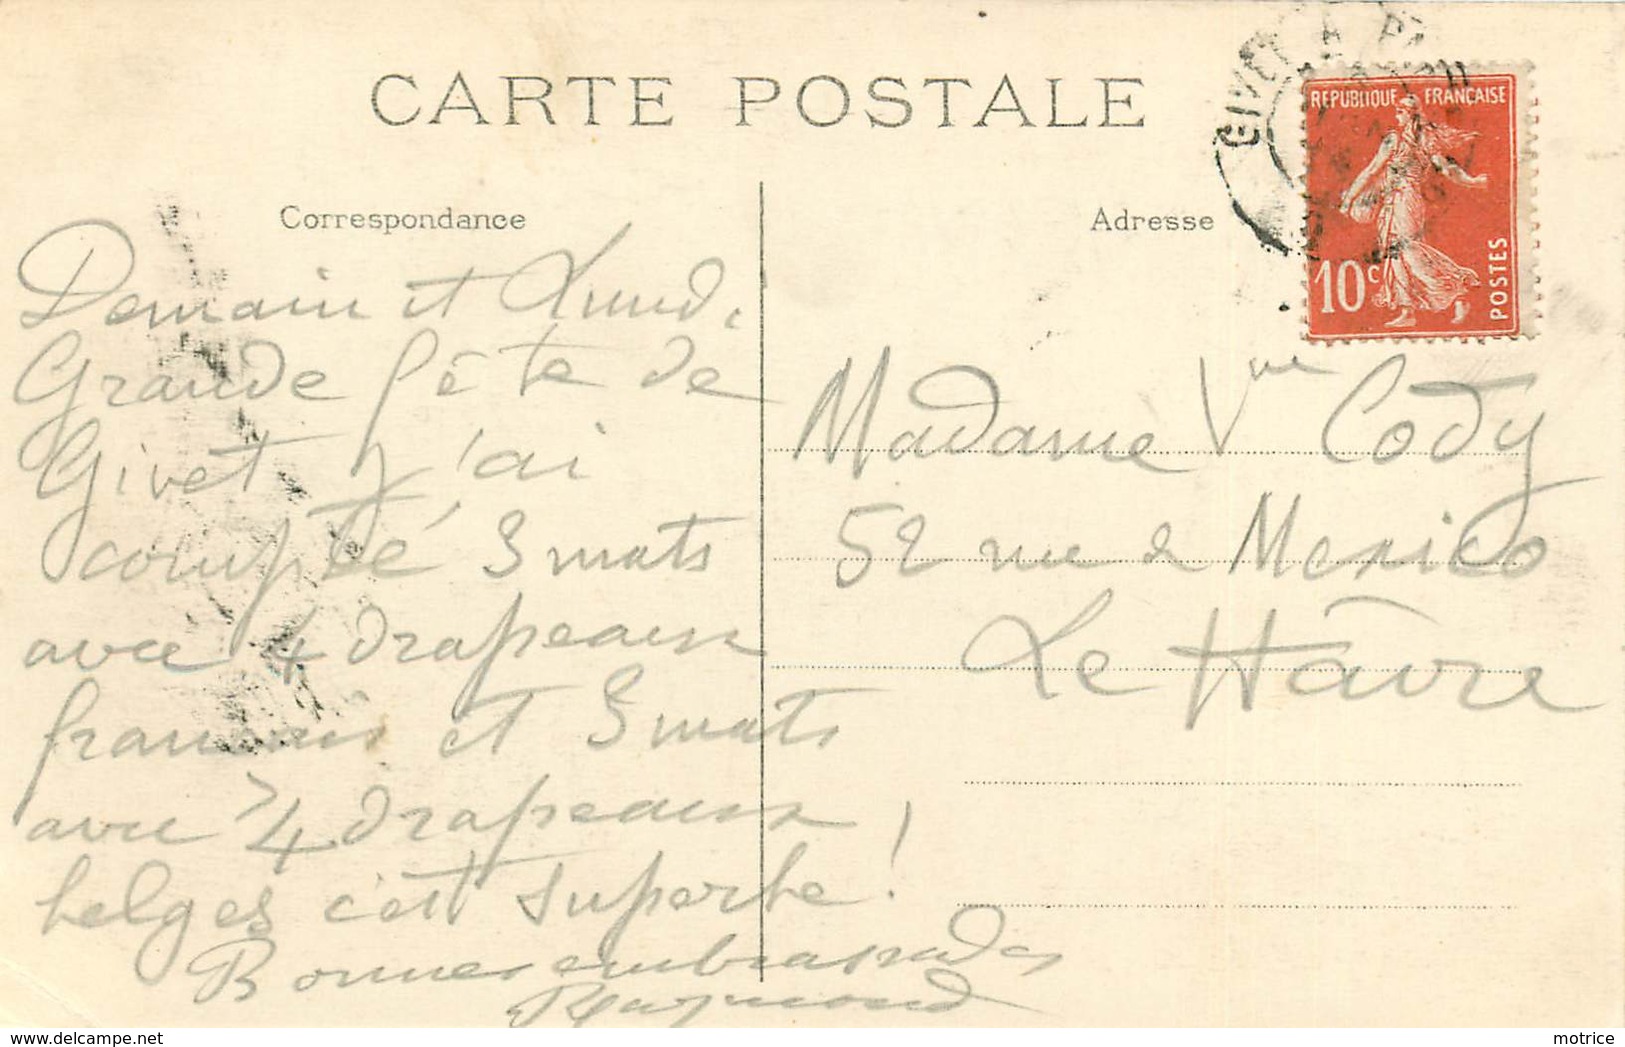 CARTE POSTALE
Correspondance
Demain et Lundi
Grande fête de
Givet j'ai
compté 3 mats
avec 4 drapeaux
français et 3 mats
avec 4 drapeaux
belges c'est superbe!
Bonnes embrassades
Raymond
Adresse
GIVET A
REPUBLIQUE FRANÇAISE
10c
POSTES
Madame Vve Cody
52 rue de Mexico
Le Hâvre
delcampe.net
motrice